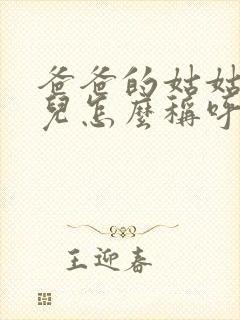 爸爸的姑姑
兒怎麼稱呼
王迎春